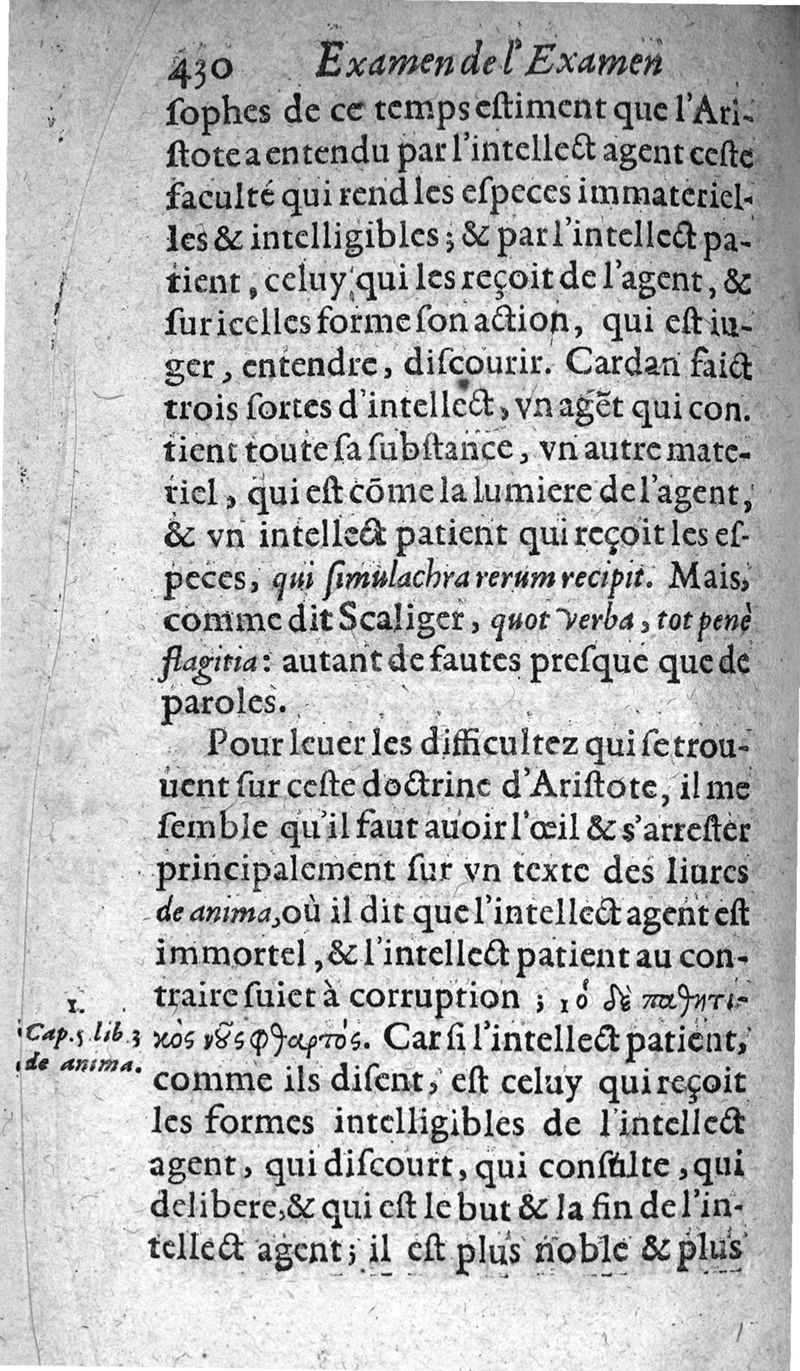 430 Examen de l'Examen
ſophes de ce temps eſtiment que l'Ari-
ſtote a entendu par l'intellect agent ceſte
faculté qui rend les eſpeces immateriel-
les & intelligibles; & par l'intellect pa-
tient, celuy qui les reçoit de l'agent, &
ſur icelles forme ſon action, qui eſt iu-
ger, entendre, diſcourir. Cardan faict
trois ſortes d'intellect, vn agẽt qui con.
tient toute ſa ſubſtance, vn autre mate-
riel, qui eſt cõme la lumiere de l'agent,
& vn intellect patient qui reçoit les eſ-
peces, qui ſimulachra rerum recipit. Mais,
comme dit Scaliger, quot verba, tot penè
flagitia: autant de fautes preſque que de
paroles.
Pour leuer les difficultez qui ſe trou-
uent ſur ceſte doctrine d'Ariſtote, il me
ſemble qu'il faut auoir l'œil & s'arreſter
principalement ſur vn texte des liures
de anima, où il dit que l'intellect agent eſt
immortel, & l'intellect patient au con-
traire ſuiet à corruption; 1 ὁ δὲ παθητι-
κὸς νοῦς φθαρτός. Car ſi l'intellect patient,
comme ils diſent, eſt celuy qui reçoit
les formes intelligibles de l'intellect
agent, qui diſcourt, qui conſulte, qui
delibere, & qui eſt le but & la fin de l'in-
tellect agent; il eſt plus noble & plus
1.
Cap. 5 lib. 3
de anima.